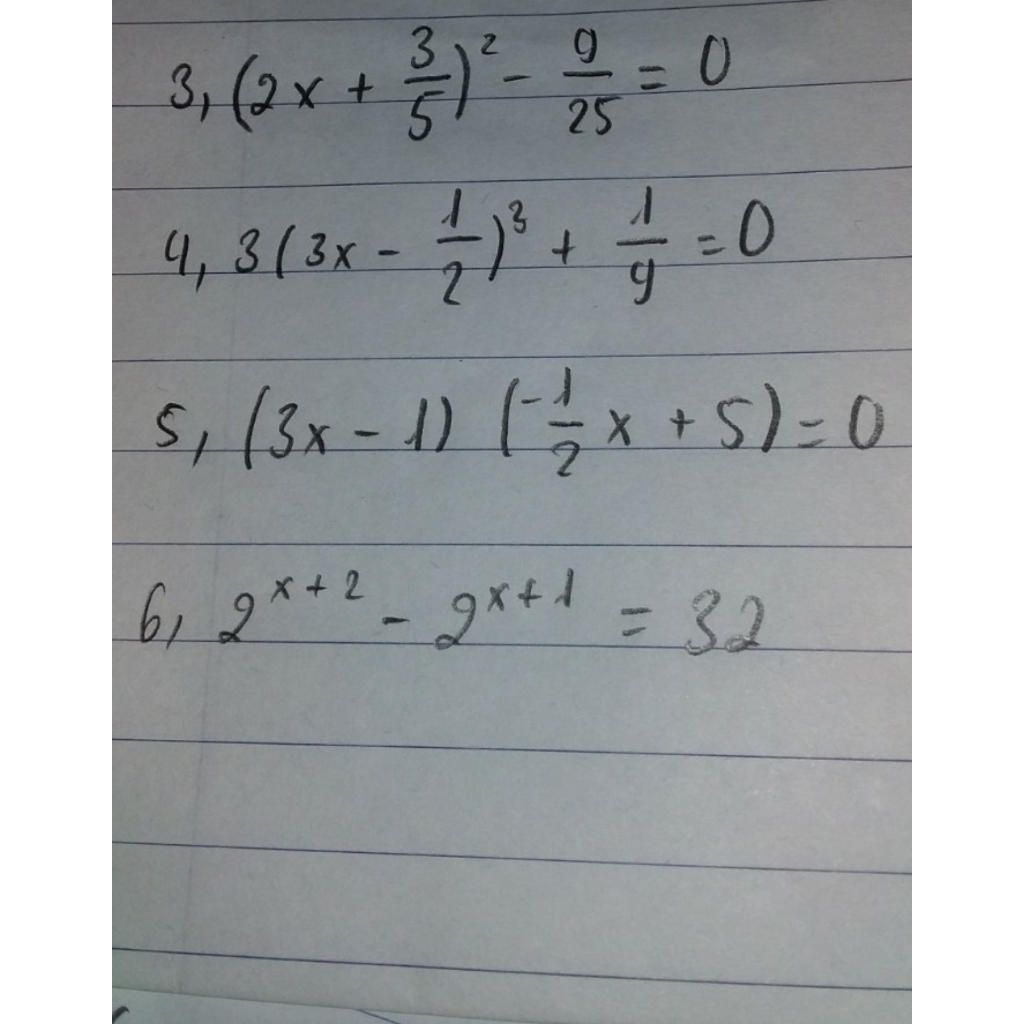 3, (2x + 3/5)² - 9/25 = 0
4, 3(3x - 1/2)³ + 1/9 = 0
5, (3x - 1) (-1/2 x + 5) = 0
6, 2^(x+2) - 2^(x+1) = 32